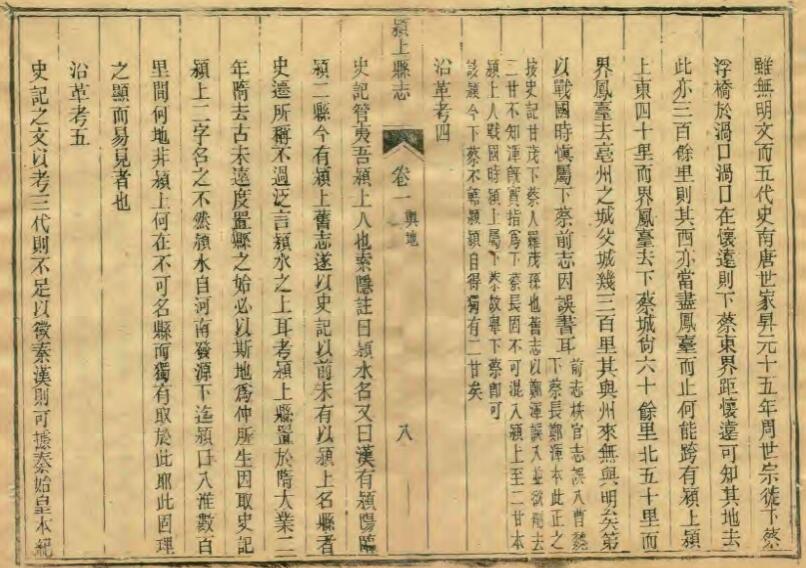 雖無明文而五代史南唐世家昇元十五年周世宗徙下蔡
浮橋於渦口渦口在懷遠則下蔡東界距懷遠可知其地去
此亦三百餘里則其西亦當盡鳳臺而止何能跨有潁上潁
上東四十里而界鳳臺去下蔡城尙六十餘里北五十里而
界鳳臺去亳州之城父城幾三百里其與州來無與明矣第
以戰國時慎屬下蔡前志因誤書耳
前志秩官志誤入曹魏
下蔡長鄭渾本此正之
按史記甘茂下蔡人羅茂孫也舊志以鄭渾誤入並欲削去
二甘不知渾旣實指爲下蔡長固不可混入潁上至二甘本
潁上人戰國時潁上屬下蔡故舉下蔡卽可
該潁今下蔡不轄潁潁自得獨有二甘矣
沿革考四
潁上縣志
卷一
輿地
八
史記管夷吾潁上人也索隱註曰潁水名又曰漢有潁陽臨
潁二縣今有潁上舊志遂以史記以前未有以潁上名縣者
史遷所稱不過泛言潁水之上耳考潁上縣置於隋大業二
年隋去古未遠度置縣之始必以斯地爲仲所生因取史記
潁上二字名之不然潁水自河南發源下迄潁口入淮數百
里間何地非潁上何在不可名縣而獨有取於此耶此固理
之顯而易見者也
沿革考五
史記之文以考三代則不足以徵秦漢則可據秦始皇本紀